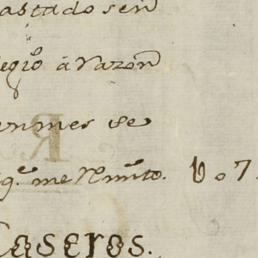 astado sen
egio à razon
un mes se
q.e me Rmito. V o 7.
Caseros.